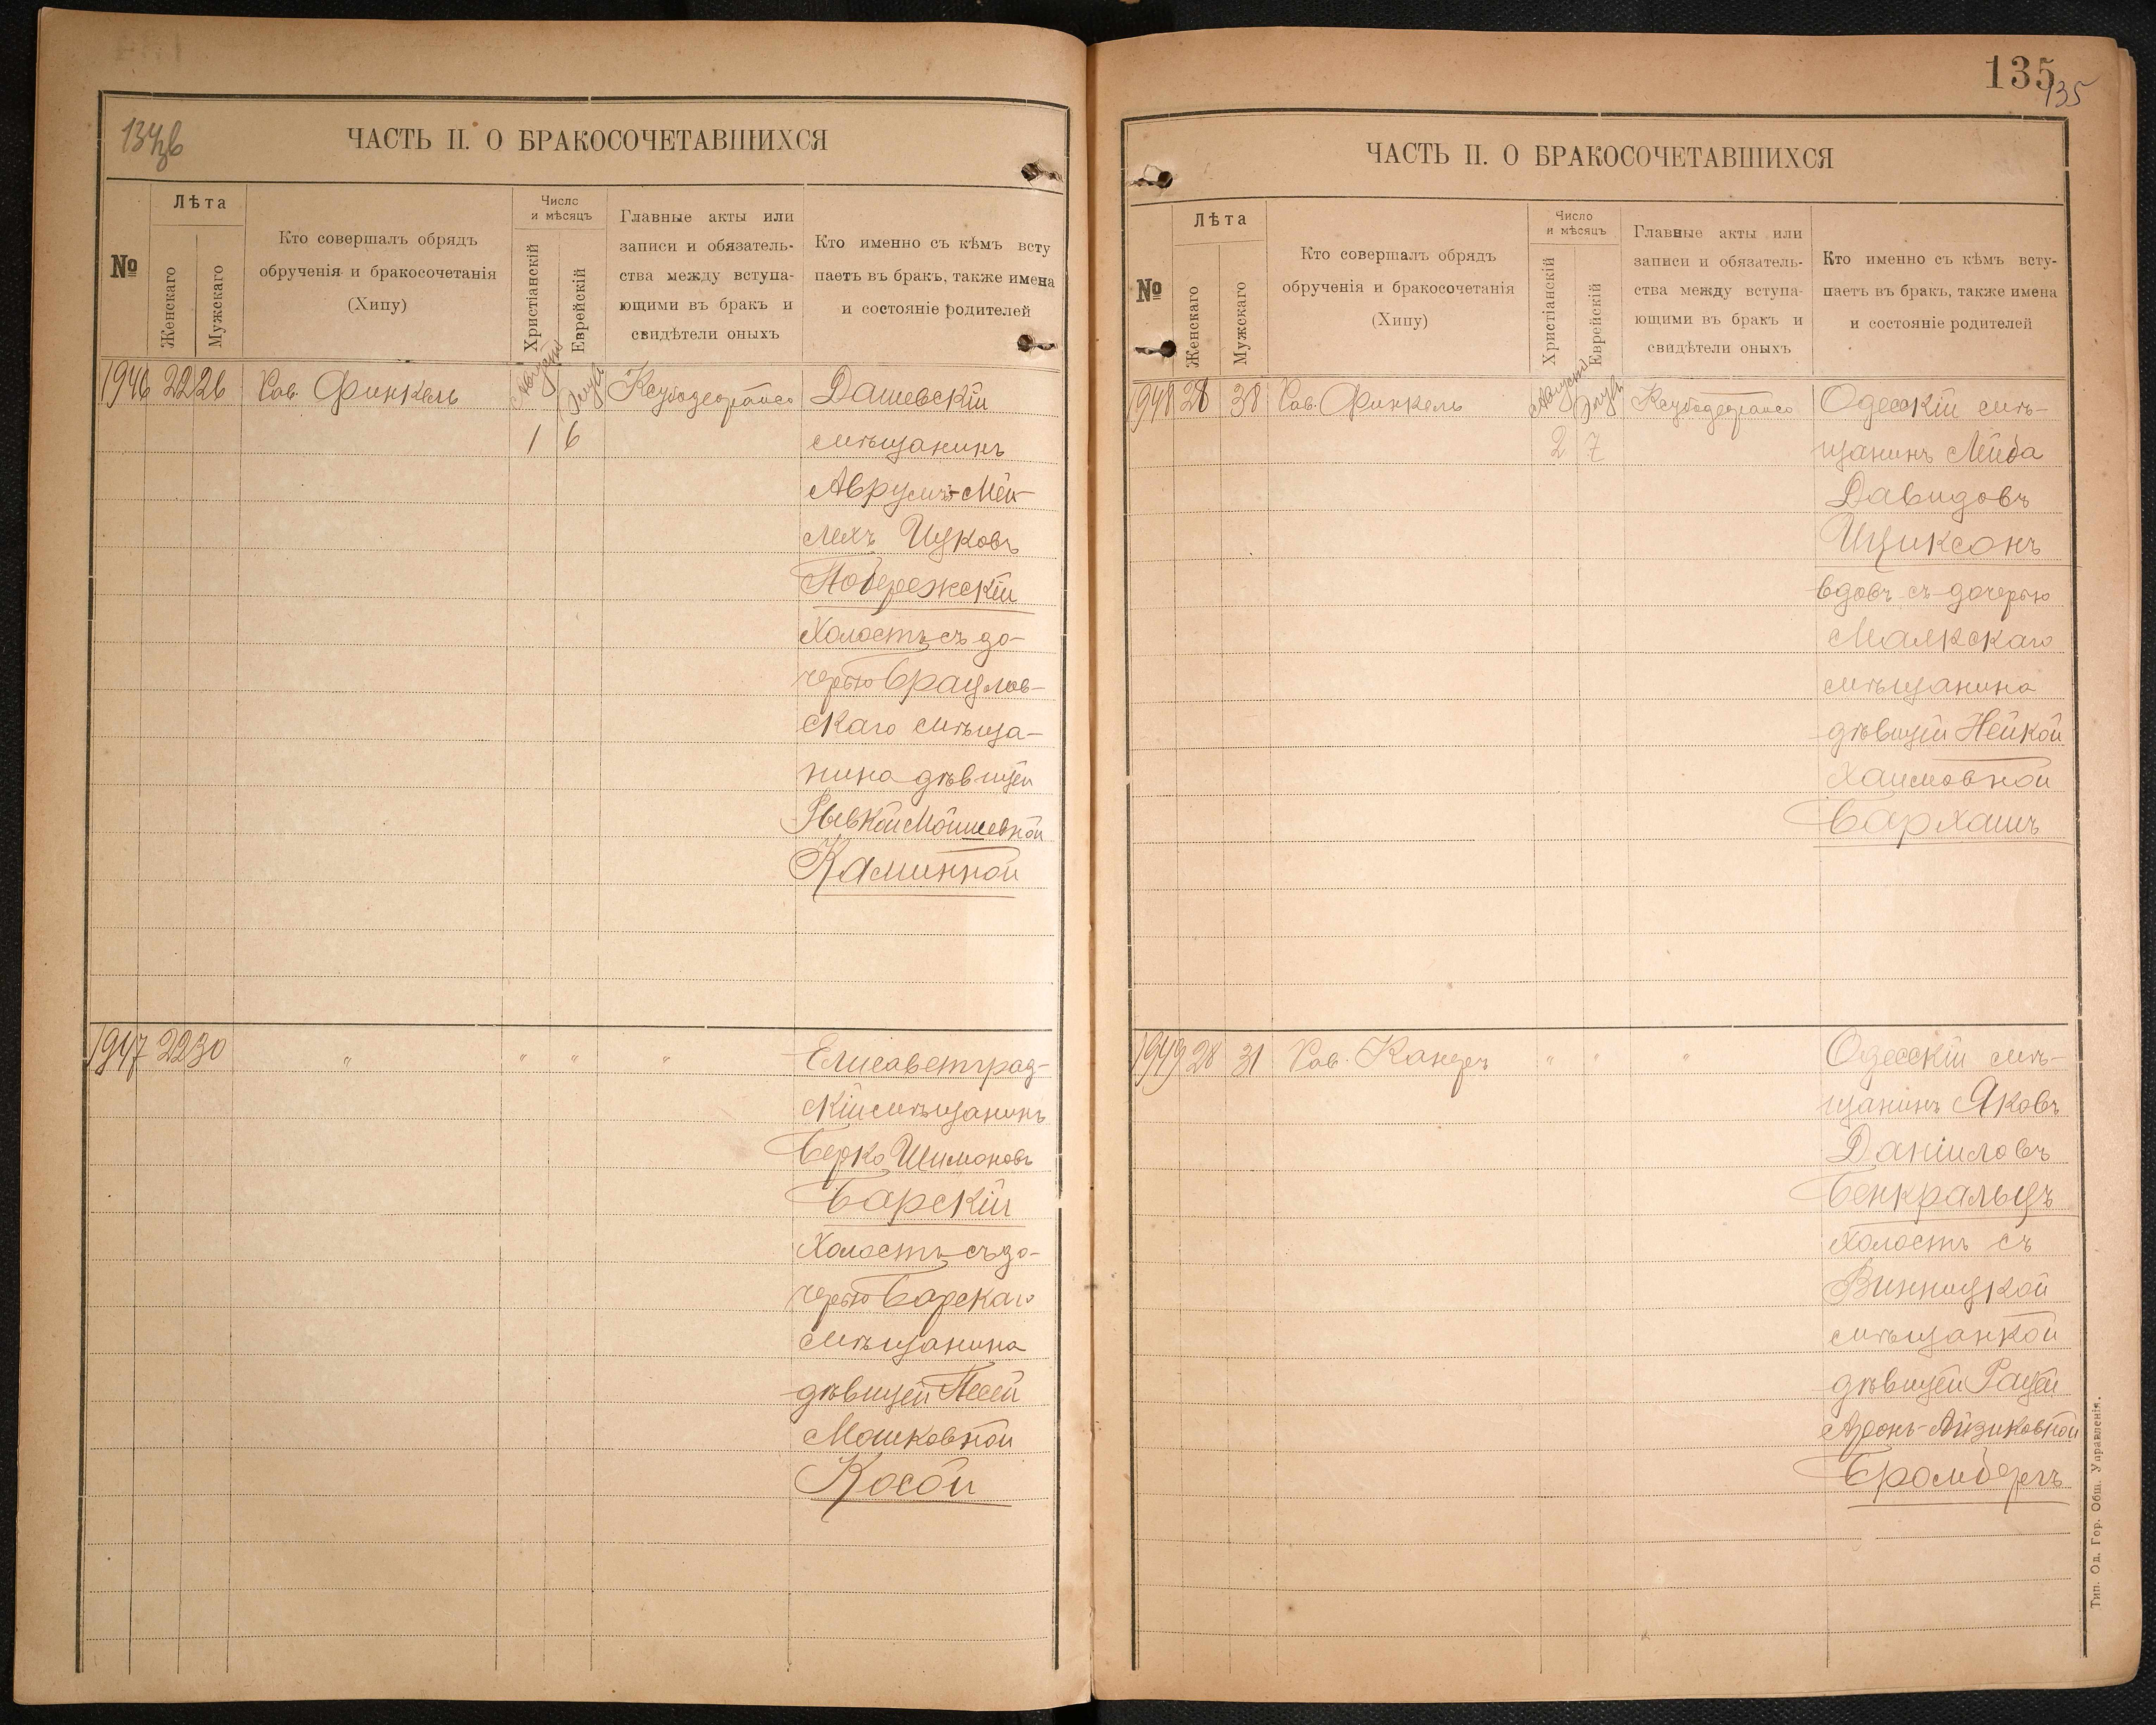 134об
ЧАСТЬ II. О БРАКОСОЧЕТАВШИХСЯ
№
Лѣта
Женскаго
Мужскаго
Кто совершалъ обрядъ
обрученія и бракосочетанія
(Хипу)
Число
и мѣсяцъ
Христіанскій
Еврейскій
Главные акты или
записи и обязатель-
ства между вступа-
ющими въ бракъ и
свидѣтели оныхъ
Кто именно съ кѣмъ всту
паетъ въ бракъ, также имена
и состояніе родителей
1946 22 26 Рав. Финкель Августъ Элулъ
1 6
Дашевскій
мѣщанинъ
Аврумъ-Мей-
лехъ Ицковъ
Побережскій
Холостъ съ до-
черью Брацлав-
скаго мѣща-
нина дѣвицей
Рывкой Мошиевной
Каминной
1947 22 30 " " " "
Елисаветград-
скій мѣщанинъ
Берко Шимоновъ
Барскій
Холостъ съ до-
черью Барскаго
мѣщанина
дѣвицей Песей
Мошковной
Косой
135
135
ЧАСТЬ II. О БРАКОСОЧЕТАВШИХСЯ
№
Лѣта
Женскаго
Мужскаго
Кто совершалъ обрядъ
обрученія и бракосочетанія
(Хипу)
Число
и мѣсяцъ
Христіанскій
Еврейскій
Главные акты или
записи и обязатель-
ства между вступа-
ющими въ бракъ и
свидѣтели оныхъ
Кто именно съ кѣмъ всту-
паетъ въ бракъ, также имена
и состояніе родителей
1948 28 38 Рав. Финкель Августъ Элулъ
2 7
Одесскій мѣ-
щанинъ Лейба
Давидовъ
Ициксонъ
вдовъ съ дочерью
мѣщанина
дѣвицей Нейхой
Хаимовной
Бархашъ
1949 28 31 Рав. Канеръ " " "
Одесскій мѣ-
щанинъ Яковъ
Даніиловъ
Бенкральцъ
Холостъ съ
Винницкой
мѣщанкой
дѣвицей Рацей
Аронъ-Айзиковной
Бромбергъ
Тип. Од. Гор. Общ. Управленія.